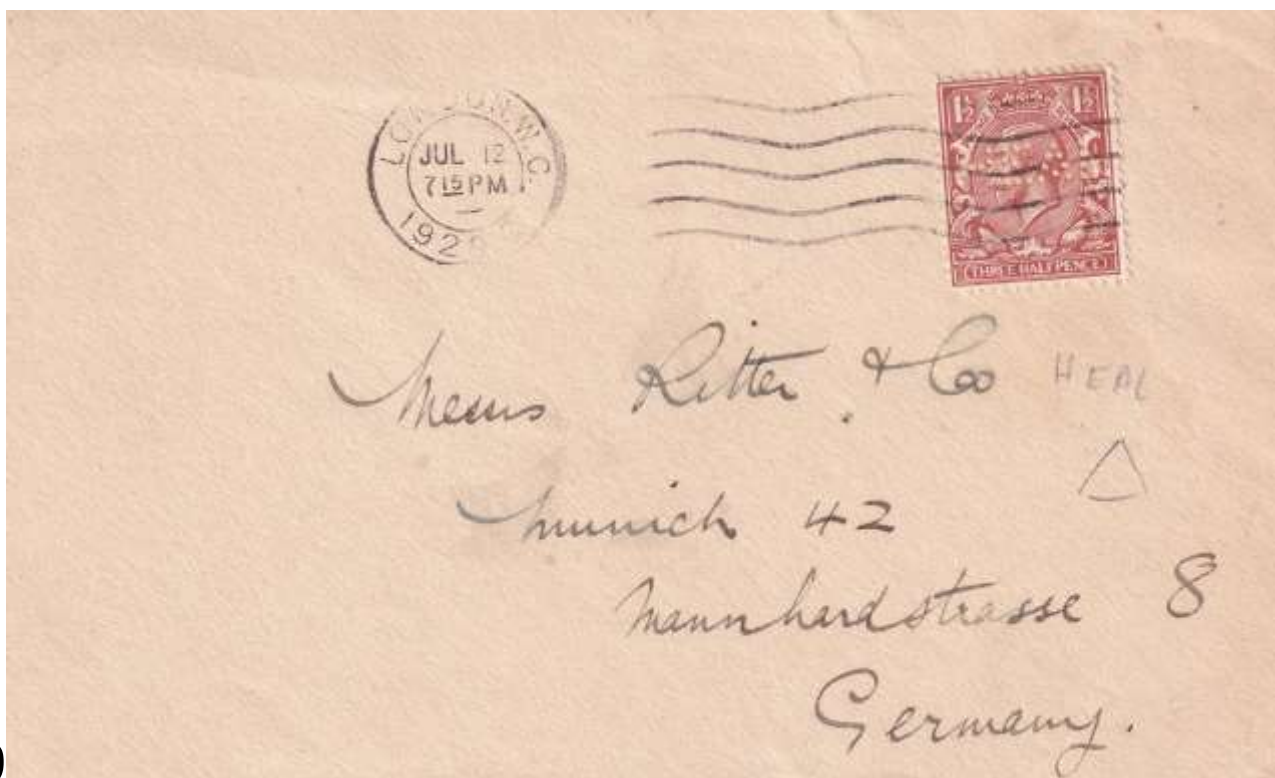 LONDON. W.C.
JUL 12
7 15 PM
192
1½ 1½
THREE HALF PENCE
Messrs Ritter & Co
HEAL
Munich 42
Mannhardstrasse 8
Germany.